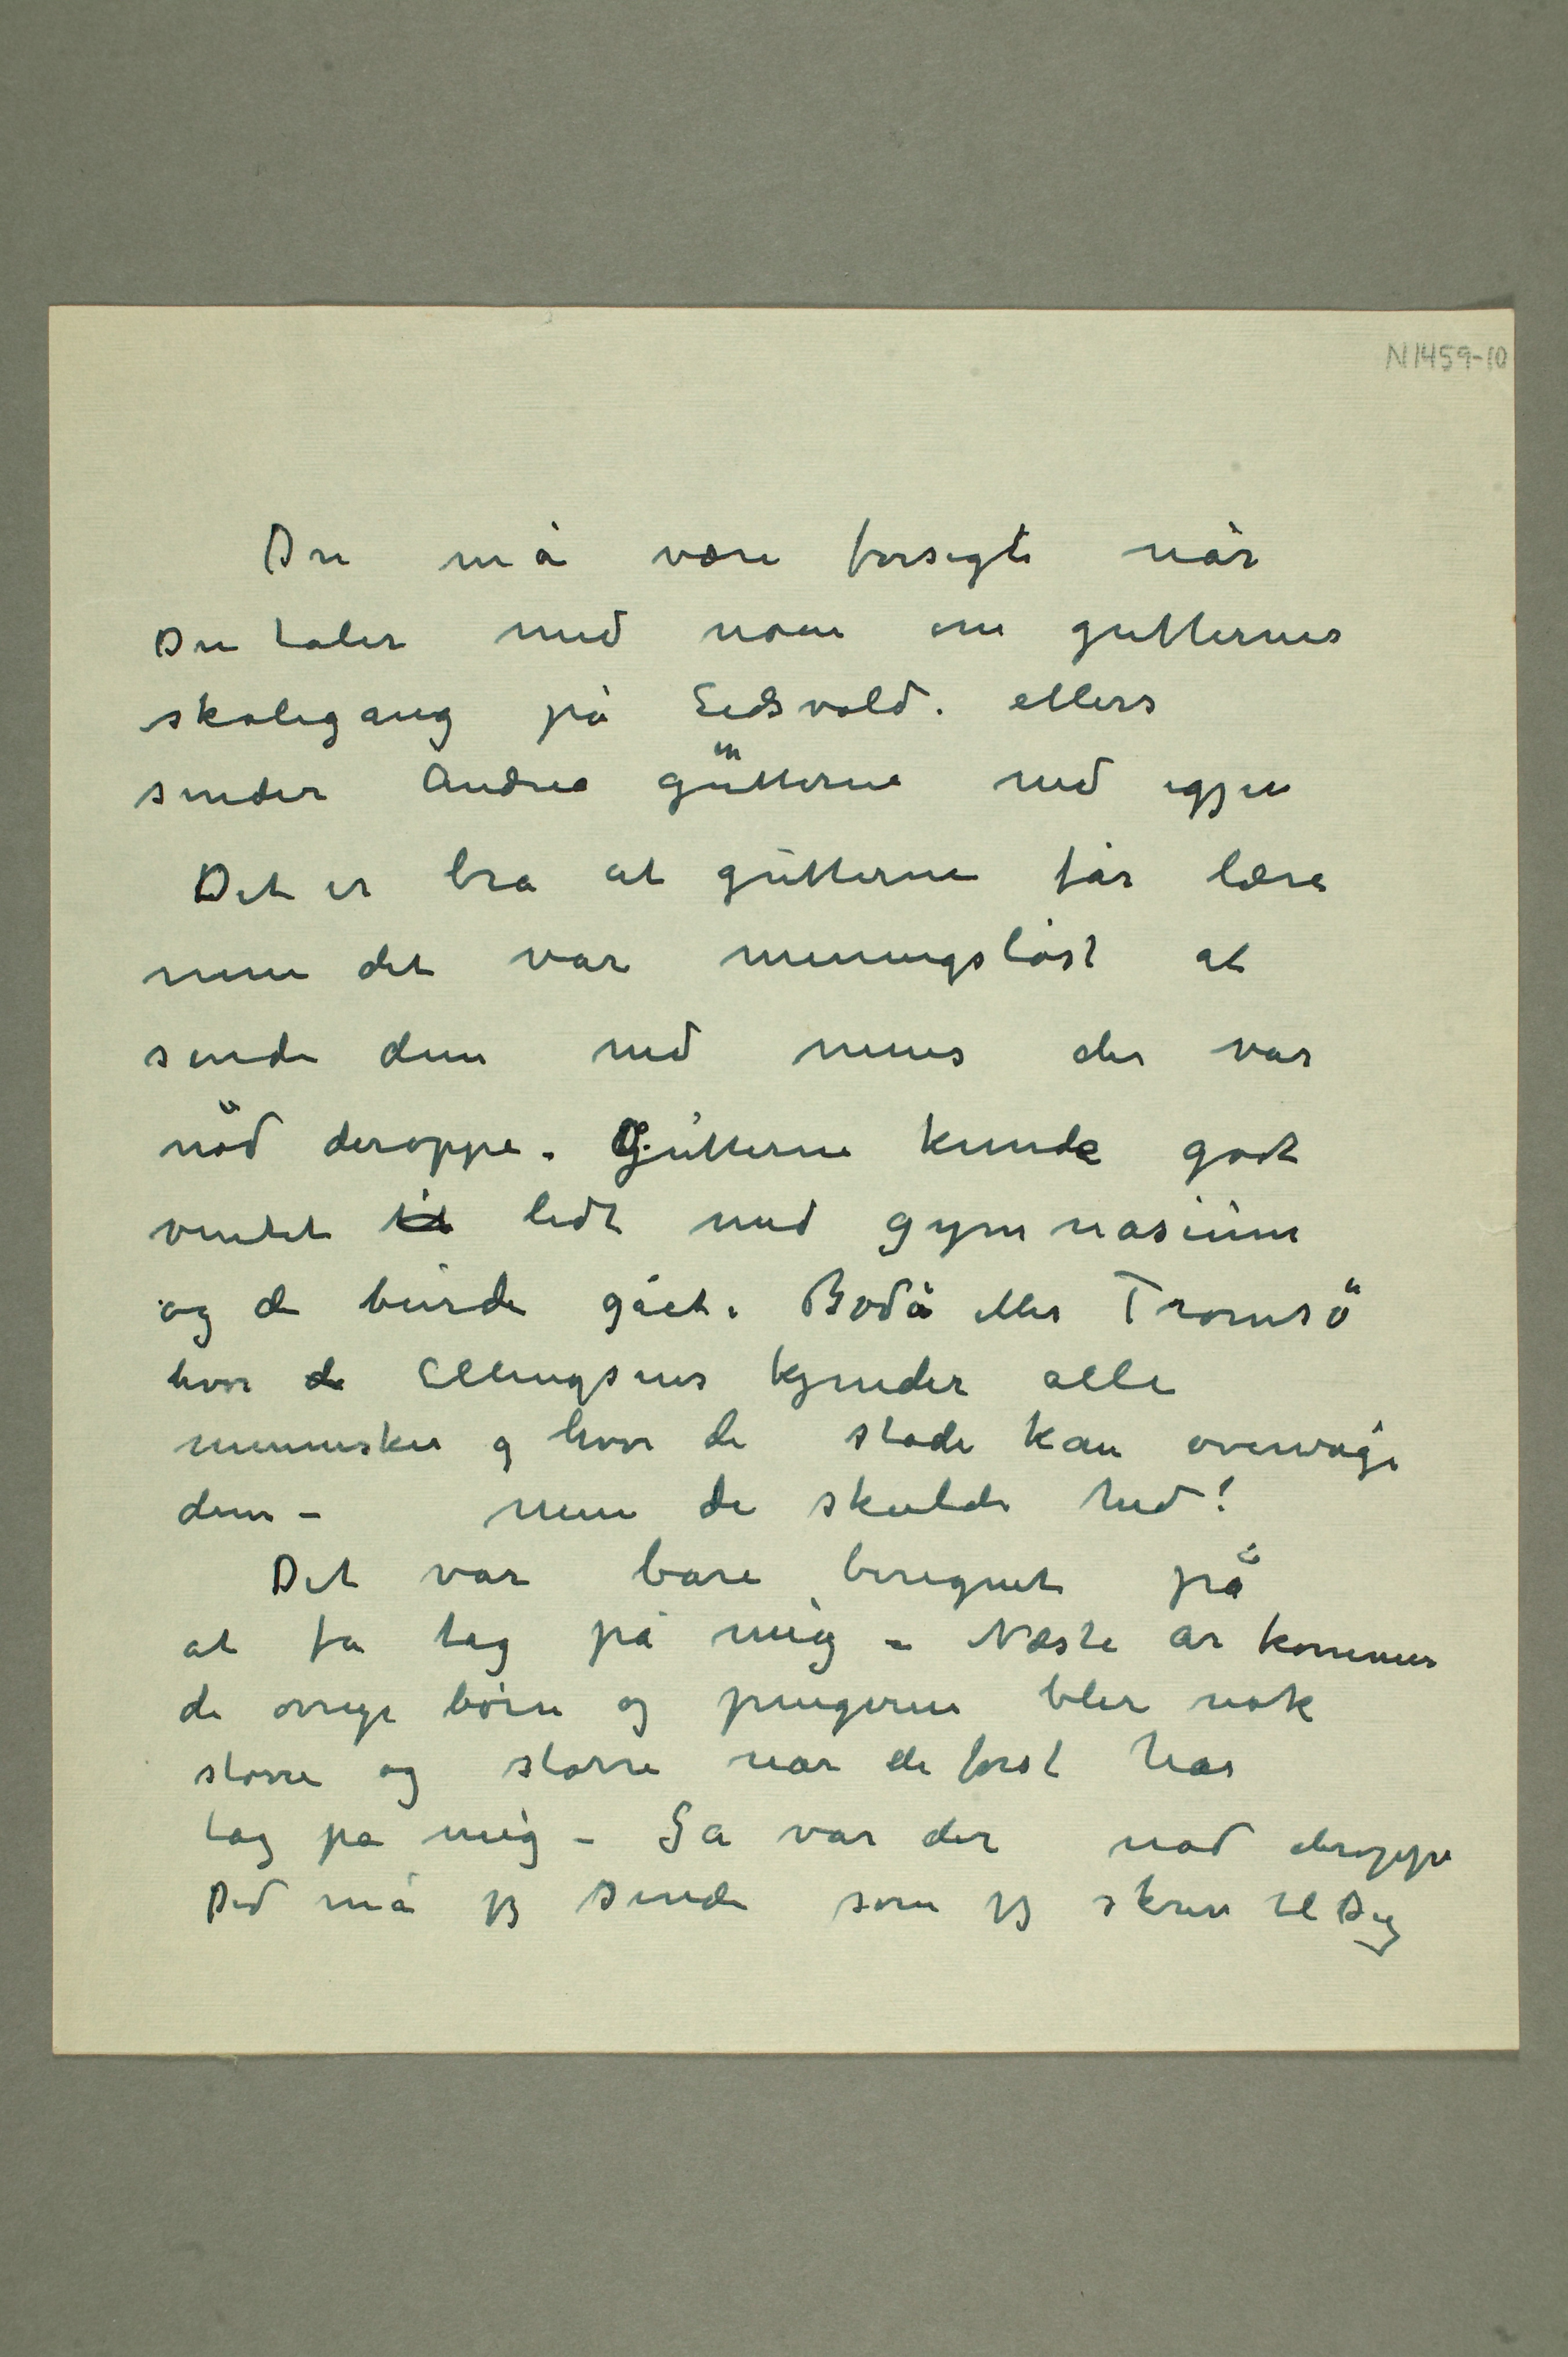 N 1459-10
Du må være forsigti når
Du taler med noen om gutternes
skolegang på Eidsvold. ellers
sender Andrea gutterne ned igjen
Det er bra at gutterne får lære
men det var meningsløst at
sende dem ned mens der var
nöd deroppe. Gutterne kunde godt
ventet lidt med gymnasium
og de burde gået i Bodø eller Tromsö
hvor de Ellingsens kjender alle
mennesker og hvor de stade kan overvåge
dem – men de skulde hid!
Det var bare beregnet på
at få tag på mig – Næste år kommer
de øvrige børn og pengerne blir nok
større og større når de først har
tag på mig – Så var der nød deroppe
Ded må jeg sende som jeg skrev til Dig